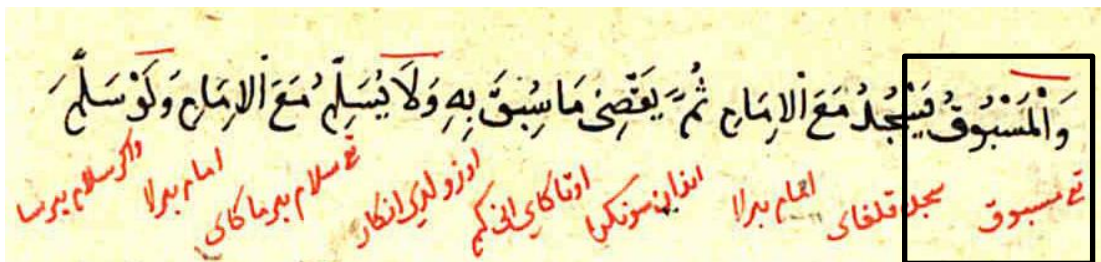 وَالْمَسْبُوقُ يَسْجُدُ مَعَ الْاِمَامِ ثُمَّ يَقْضِى مَا سُبِقَ بِهِ وَلَا يُسَلِّمُ مَعَ الْاِمَامِ وَلَوْ سَلَّمَ
تى مسبوق سجده قلغاى امام بيرلا اندان سونكرا اوتاكاى انى كم اوزولدى انكار تى سلام بيرماكاى امام بيرلا واكر سلام بيرسا